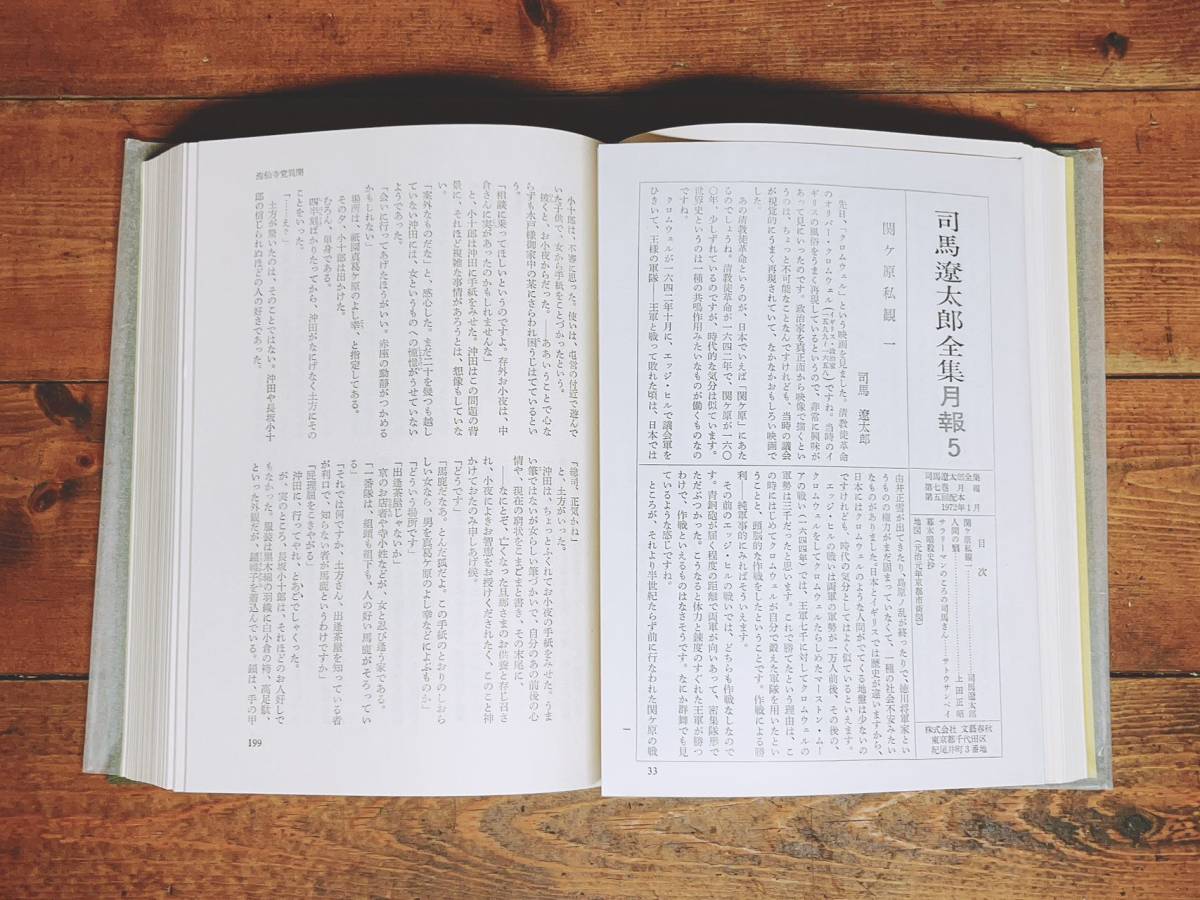 司馬遼太郎全集月報5
司馬遼太郎全集
第七巻 月報
第五回配本
1972年1月
目次
関ヶ原私観一……司馬遼太郎
人間の騒……上田正昭
サラリーマンのころの司馬さん……サトウサンペイ
幕末暗殺史抄
地図(元治元年京都市街図)
株式会社 文藝春秋
東京都千代田区
紀尾井町3番地
関ヶ原私観 一
司馬 遼太郎
先日、「クロムウェル」という映画を見ました。清教徒革命
のオリバー・クロムウェル(イギリス・政治家 一五九九―一六五八)ですね。当時のイ
ギリスの風俗をうまく再現しているというので、非常に興味が
あって見にいったのです。政治家を真正面から映像で描くとい
うのは、ちょっと不可能なことなんですけれども、当時の議会
が視覚的にうまく再現されていて、なかなかおもしろい映画で
した。
あの清教徒革命というのが、日本でいえば「関ヶ原」にあた
るのでしょうね。清教徒革命が一六四二年で、関ケ原が一六〇
〇年、少しずれているのですが、時代的な気分は似ています。
世界史というのは一種の共鳴作用みたいなものが働くものなの
ですね。
クロムウェルが一六四二年十月に、エッジ・ヒルで議会軍を
ひきいて、王様の軍隊――王軍と戦って敗れた頃は、日本では
由井正雪が出てきたり、島原ノ乱が終ったりで、徳川将軍家とい
うものの権力がまだ固まっていなくて、一種の社会不安みたい
なものがありました。日本とイギリスでは歴史が違いますから、
日本にはクロムウェルのような人間がでてくる地盤は少ないの
ですけれども、時代の気分としてはよく似ているといえます。
エッジ・ヒルの戦いは両軍の軍勢が一万人前後、その後の、
クロムウェルをしてクロムウェルたらしめたマーストン・ムー
アの戦い(一六四四年)では、王軍七千に対してクロムウェルの
軍勢は三千だったと思います。これで勝てたという理由は、こ
の時にはじめてクロムウェルが自分で鍛えた軍隊を用いたとい
うことと、頭脳的な作戦をしたということです。作戦による勝
利――純軍事的にみればそういえます。
その前のエッジ・ヒルの戦いでは、どちらも作戦なしなので
す。青銅砲が届く程度の距離で両軍が向いあって、密集隊形で
ただぶつかった。こうなると体力と錬度のすぐれた王軍が勝つ
わけで、作戦といえるものはなさそうです。なにか群舞でも見
ているような感じですね。
ところが、それより半世紀たらず前に行なわれた関ケ原の戦
一
33
油仙寺党異聞
小十郎は、不審に思った。使いは、屯営の付近で遊んで
いた子供で、女から手紙をことづかったという。
披くと、お小夜からだった。――ああいうことで心な
らずも水戸様御家中の茶にさらわれ困うじはてているとい
う。
「相談に乗ってほしいというのですよ。存外お小夜は、中
倉さんに実があったのかもしれませんな」
と、小十郎は沖田に手紙をみせた。沖田はこの問題の背
景に、それほど複雑な事情があろうとは、想像もしていな
い。
「案外なものだな」と、感心した。まだ二十を幾つも越し
ていない沖田には、女というものへの憧憬がうせていない
ようであった。
「会いに行ってあげたほうがいい。赤座の動静がつかめる
かもしれない」
場所は、祇園真葛ケ原のよし幸、と指定してある。
その夕、小十郎は出かけた。
むろん、単身である。
四半刻ばかりたってから、沖田がなにげなく土方にその
ことをいった。
「……え?」
土方が驚いたのは、そのことではない。沖田や長坂小十
郎の信じられぬほどの人の好さであった。
「総司、正気かね」
と、土方がいった。
沖田は、ちょっとふくれてお小夜の手紙をみせた。うま
い筆ではないが女らしい筆づかいで、自分のあの前後の心
情や、現在の窮状をこまごまと書き、その末尾に、
――なにとぞ、亡くなった旦那さまのお供養と存じ召さ
れ、小夜によきお智恵をお授けくだされたく、このこと神
かけておたのみ申しあげ候。
「どうです」
「馬鹿だなあ。とんだ狐だよ。この手紙のとおりのしおら
しい女なら、男を真葛ケ原のよし幸などによぶものか」
「どういう場所です」
「出逢茶屋じゃないか」
京のお店者や寺小姓などが、女と忍び逢う家である。
「一番隊は、組頭も組下も、人の好い馬鹿がそろってい
る」
「それでは何ですか、土方さん、出逢茶屋を知っている者
が利口で、知らない者が馬鹿というわけですか」
「屁理屈をこきやがる」
沖田に、行ってやれ、とあごでしゃくった。
が、実のところ、長坂小十郎は、それほどのお人好しで
もなかった。服装は黒木綿の羽織に白小倉の袴、高足駄、
といった外観だが、鎖帷子を着込んでいる。鎖は、手の甲
199